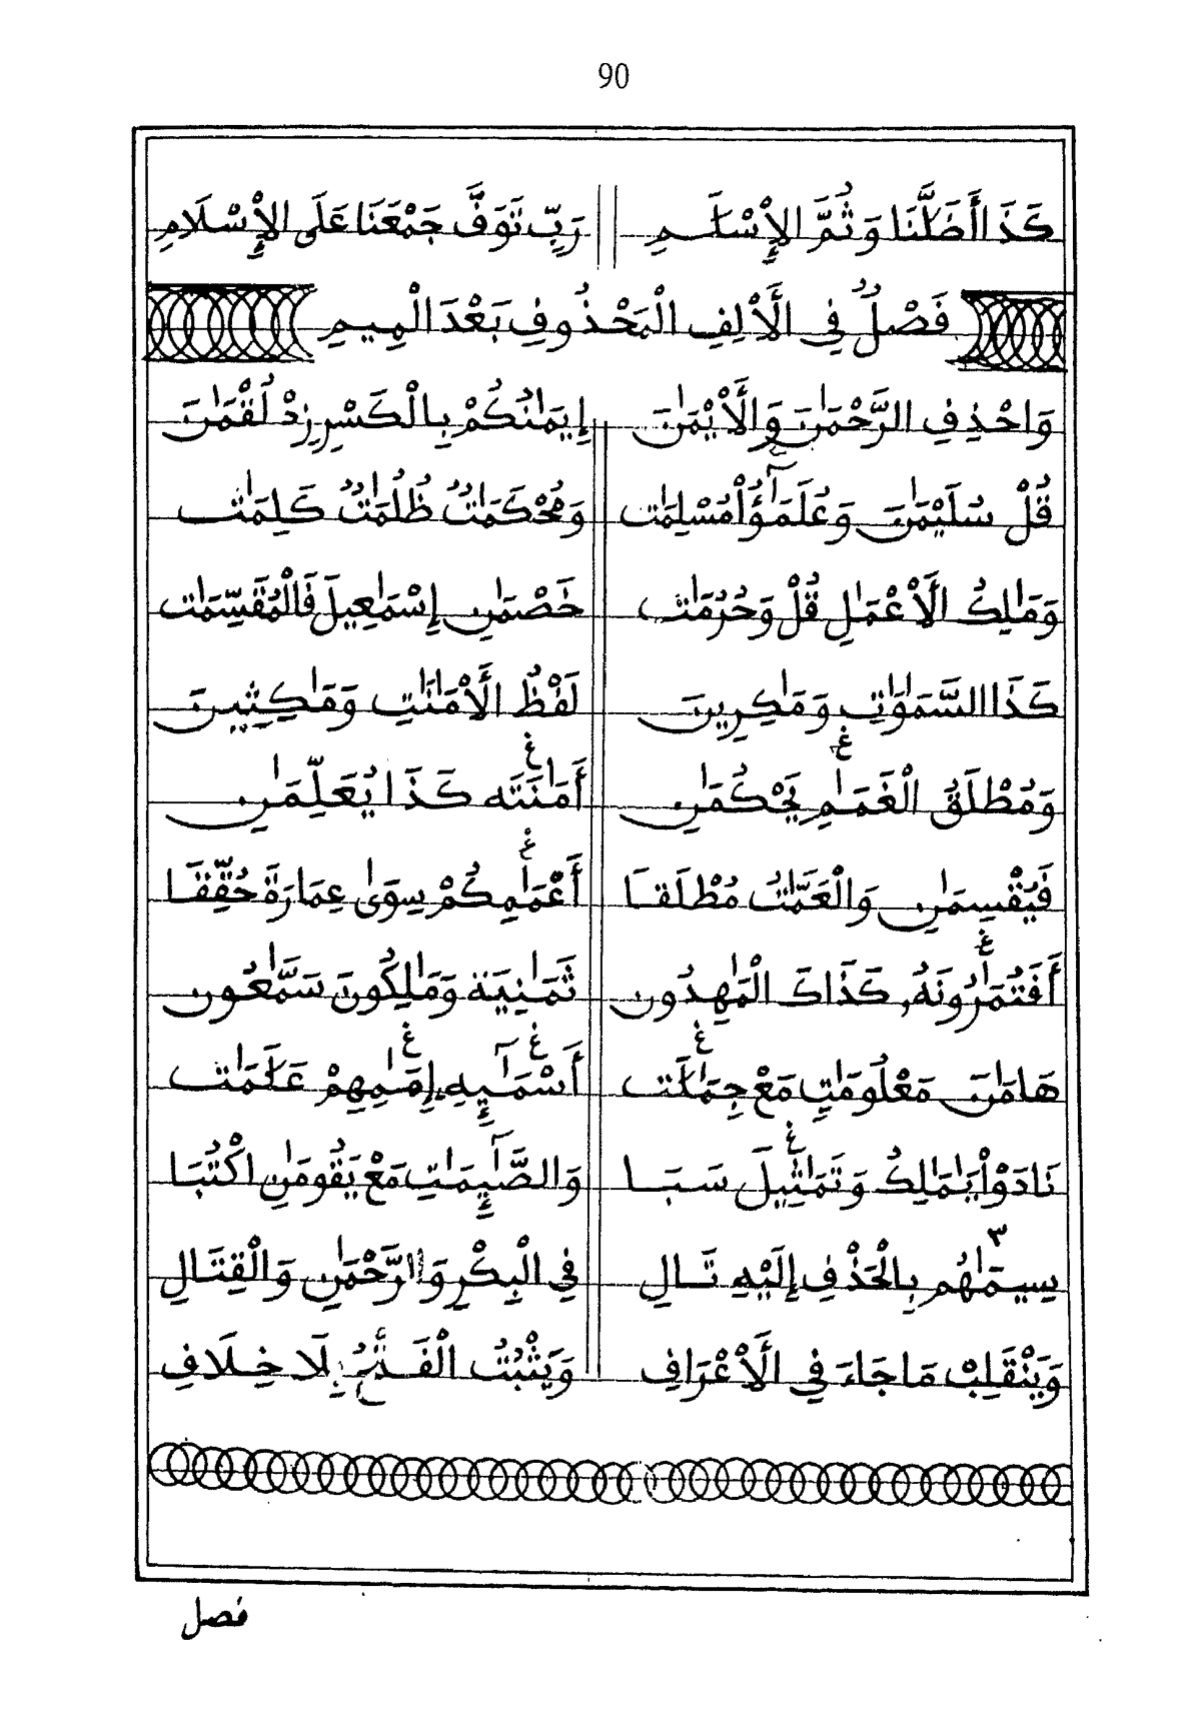 90
كَذَا أَضَلَّنَا وَثُمَّ الْإِسْلَـٰمِ رَبِّ تَوَفَّ جَمْعَنَا عَلَى الْإِسْلَامِ
فَصْلٌ فِي الْأَلِفِ الْمَحْذُوفِ بَعْدَ الْمِيمِ
وَاحْذِفِ الرَّحْمَٰنَ وَالْأَيْمَٰنَ إِيمَٰنُكُمْ بِالْكَسْرِ زِدْ لُقْمَٰنَ
قُلْ سُلَيْمَٰنَ وَعُلَمَٰٓؤُاْ مُسْلِمَٰت وَمُحْكَمَٰتٌ ظُلُمَٰتٌ كَلِمَٰت
وَمَٰلِكُ الْأَعْمَٰلِ قُلْ وَحُرُمَٰت خَصْمَٰنِ إِسْمَٰعِيلَ فَالْمُقَسِّمَٰت
كَذَا السَّمَٰوَٰتِ وَمَٰكِرِينَ لَفْظُ الْأَمَٰنَٰتِ وَمَٰكِثِينَ
وَمُطْلَقُ الْغَمَٰمِ يَحْكُمَٰنِ أَمَٰنَتَه كَذَا يُعَلِّمَٰنِ
فَيُقْسِمَٰنِ وَالْعَمَّٰتُ مُطْلَقَا أَعْمَٰمِكُمْ سِوَىٰ عِمَارَةَ حُقِّقَا
أَفَتُمَٰرُونَهُ كَذَاكَ الْمَٰهِدُون ثَمَٰنِيَة وَمَٰلِكُونَ سَمَّٰعُون
هَامَٰنَ مَعْلُومَٰتٍ مَعْ جِمَٰلَت أَسْمَٰٓئِهِ إِمَٰمِهِمْ عَلَٰمَٰت
نَادَوْاْ يَٰمَٰلِكُ وَتَمَٰثِيلَ سَبَا وَالصَّٰٓئِمَٰتِ مَعْ يَقُومَٰنِ اكْتُبَا
سِيمَٰهُم بِالْحَذْفِ إِلَيْهِ تَالِ فِي الْبِكْرِ وَالرَّحْمَٰنِ وَالْقِتَالِ
وَيَنْقَلِبْ مَا جَاءَ فِي الْأَعْرَافِ وَيَثْبُتُ الْفَتْحُ بِلَا خِلَافِ
فصل